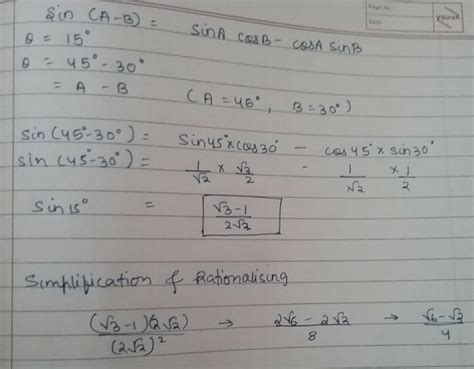 Page No.
Date
YOUVA
Sin (A-B) = SinA cosB - cosA sinB
θ = 15°
θ = 45° - 30°
= A - B (A = 45°, B = 30°)
sin (45°-30°) = Sin45° × cos30° - cos45° × sin30°
sin (45°-30°) = 1/√2 × √3/2 - 1/√2 × 1/2
Sin15° = √3-1/2√2
Simplification & Rationalising
(√3-1)(2√2)/(2√2)² → 2√6 - 2√2/8 → √6-√2/4